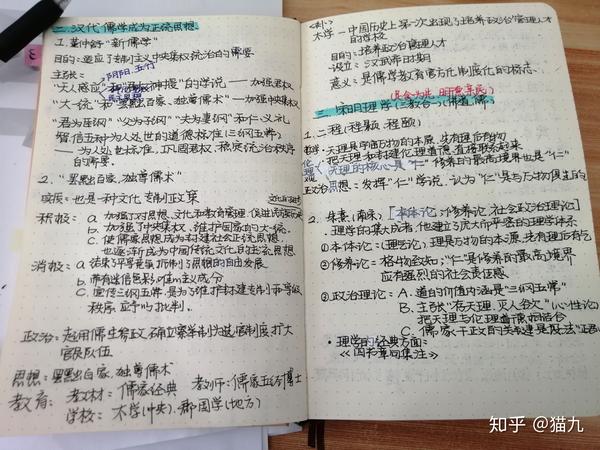 二.汉代儒学成为正统思想
1.董仲舒"新儒学"
目的:适应了专制主义中央集权统治的需要
主张: 阴阳.五行
"天人感应""君权神授"的学说——加强君权
"大一统"和"罢黜百家,独尊儒术"——加强中央集权
"君为臣纲""父为子纲""夫为妻纲"和仁义礼
智信五种为人处世的道德标准(三纲五常)
——为人处世标准,巩固君权,稳定统治秩序
的需要.
2."罢黜百家,独尊儒术"
实质:也是一种文化专制政策
积极:a.加强了对思想、文化和教育管理,
b.加强了中央集权,维护国家的大一统.
c.使儒家思想成为封建社会正统思想.
也逐渐成为中国传统文化的主流思想.
消极:a.结束了百家争鸣,抑制了思想的自由发展.
b.带有迷信色彩,唯心主义成分
c.宣传三纲五常,是为了维护封建专制和等级
秩序,应予以批判.
政治:起用儒生参政,确立察举制为选官制度,扩大
官吏队伍
思想:罢黜百家,独尊儒术
教育:教材:儒家经典 教师:儒家五经博士
学校:太学(中央)、郡国学(地方)
太学—中国历史上第一次出现了培养政治管理人才
的学校
目的:培养政治管理人才
设立:汉武帝时期
意义:是儒学教育官方化、制度化的标志.
三.宋明理学(三教合一)(佛.道.儒)
1.二程(程颢、程颐)
哲学:天理是宇宙万物的本原,先有理后有物
伦理:把天理和封建伦理道德直接联系起来
天理的核心是"仁"修养的最高境界也是"仁"
政治思想:发挥"仁"学说,认为"仁"是与天地万物俱生的
2.朱熹(南宋)[本体论;修养论.社会政治理论]
·理学的集大成者,他建立了庞大而严密的理学体系
①本体论:(理气论)理是万物的本源,先有理后有气
②修养论:格物致知;"仁"是修养的最高境界
应有强烈的社会责任感
③政治理论:A.道的价值内涵是"三纲五常"
B.主张"存天理,灭人欲"(心性论)
把天理与伦理道德相结合
C.儒家干政的关键是取法"正君心"
·理学的经典方面:
《四书章句集注》
知乎 @猫九